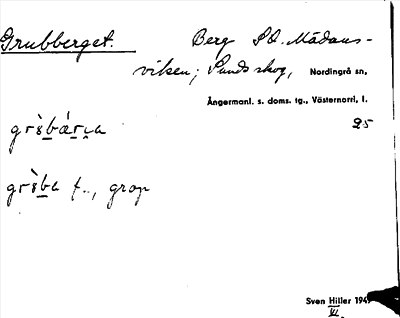 Grubberget. Berg SO. Mädans-
viken; Sunds skog, Nordingrå sn,
Ångermanl. s. doms. tg., Västernorrl. l.
25
grɞ̀bǽrɹa
grɞ̀ba f., grop
Sven Hiller 194
VI